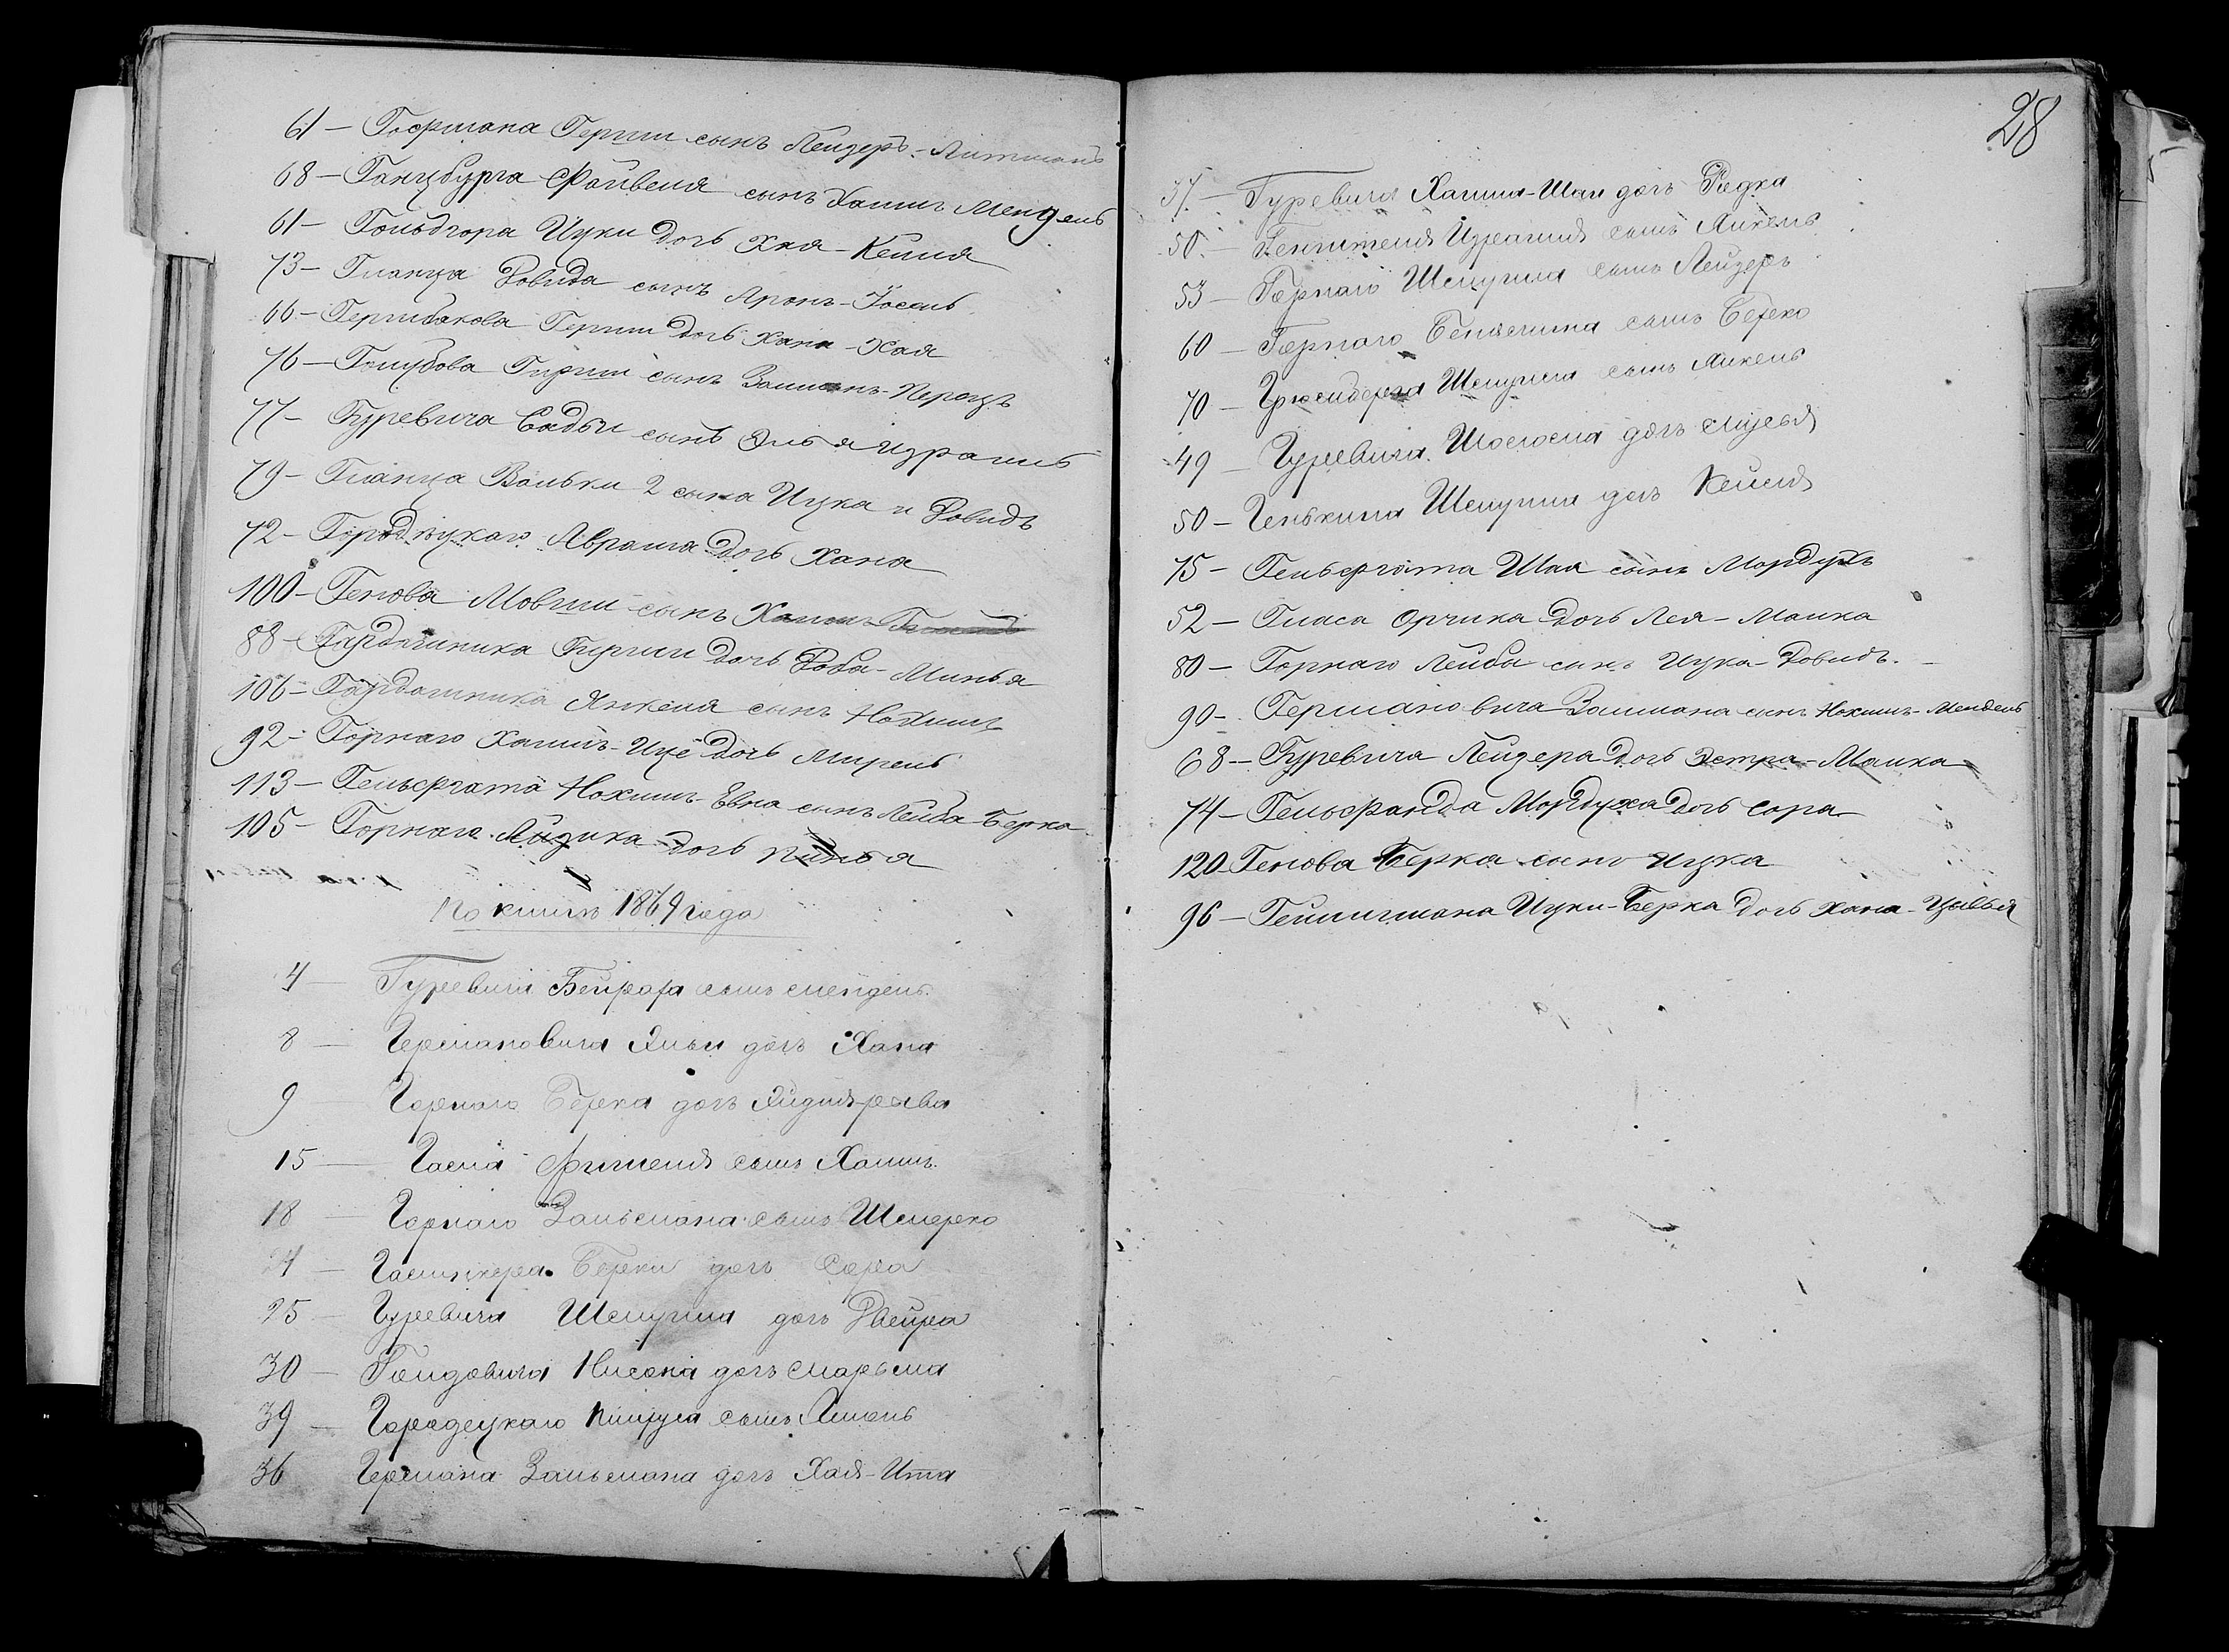 61 — Гофмана Герши сынъ Лейзеръ-Литманъ
68 — Ганцбурга Файвеля сынъ Хаимъ Мендель
61 — Гольдгора Ицки дочь Хая-Кейля
73 — Гланца Довида сынъ Аронъ-Іосель
66 — Гершбакова Герши дочь Хана-Хая
76 — Голубова Гирши сынъ Залманъ-Перецъ
77 — Гуревича Євадьи сынъ Элья Израиль
79 — Гланца Вольки 2 сына Ицка и Довидъ
72 — Городецкаго Абрама дочь Хана
100 — Генова Мовши сынъ Хаимъ
88 — Гардашника Гирши дочь Доба-Минья
106 — Гардашника Янкеля сынъ Нохимъ
92 — Горнаго Хаимъ-Ице дочь Мирель
113 — Гельфгата Нохимъ-Евна сынъ Лейба-Берка
105 — Горнаго Айзика дочь
По книгѣ 1869 года
4 — Гуревича Бейраха сынъ Мендель
8 — Германовича Эльи дочь Хана
9 — Горнаго Берка дочь
15 — Гасма сынъ Хаимъ
18 — Горнаго Зальмана сынъ Шмерко
24 — Берки дочь Сора
25 — Гуревича Шмуила дочь Двейра
30 — Нисона дочь Марьяма
39 — Городецкаго сынъ
36 Германа Зальмана дочь Хая-Ита
28
37 — Гуревича Хаима-Шаи дочь Редка
50 — Израиля сынъ Янкель
53 — Горнаго Шмуила сынъ Лейзеръ
60 — Горнаго Беньямина сынъ Берко
70 — Грюнберга Шмуила сынъ Янкель
49 — Гуревича Шолома дочь
50 — Генькина Шмуила дочь Кейля
75 — Гельфгата Шая сынъ Мордухъ
52 — Гласа Орчика дочь Лея-Малка
80 — Горнаго Лейбы сынъ Ицка-Довидъ.
90 — Германовича Залмана сынъ Нохимъ-Мендель
68 — Гуревича Лейзера дочь Эстра-Малка
74 — Гельфанда Мордуха дочь Сора
120 Генова Берка сынъ Ицка
96 — Гейлигмана Ицки-Берка дочь Хана-Цивья